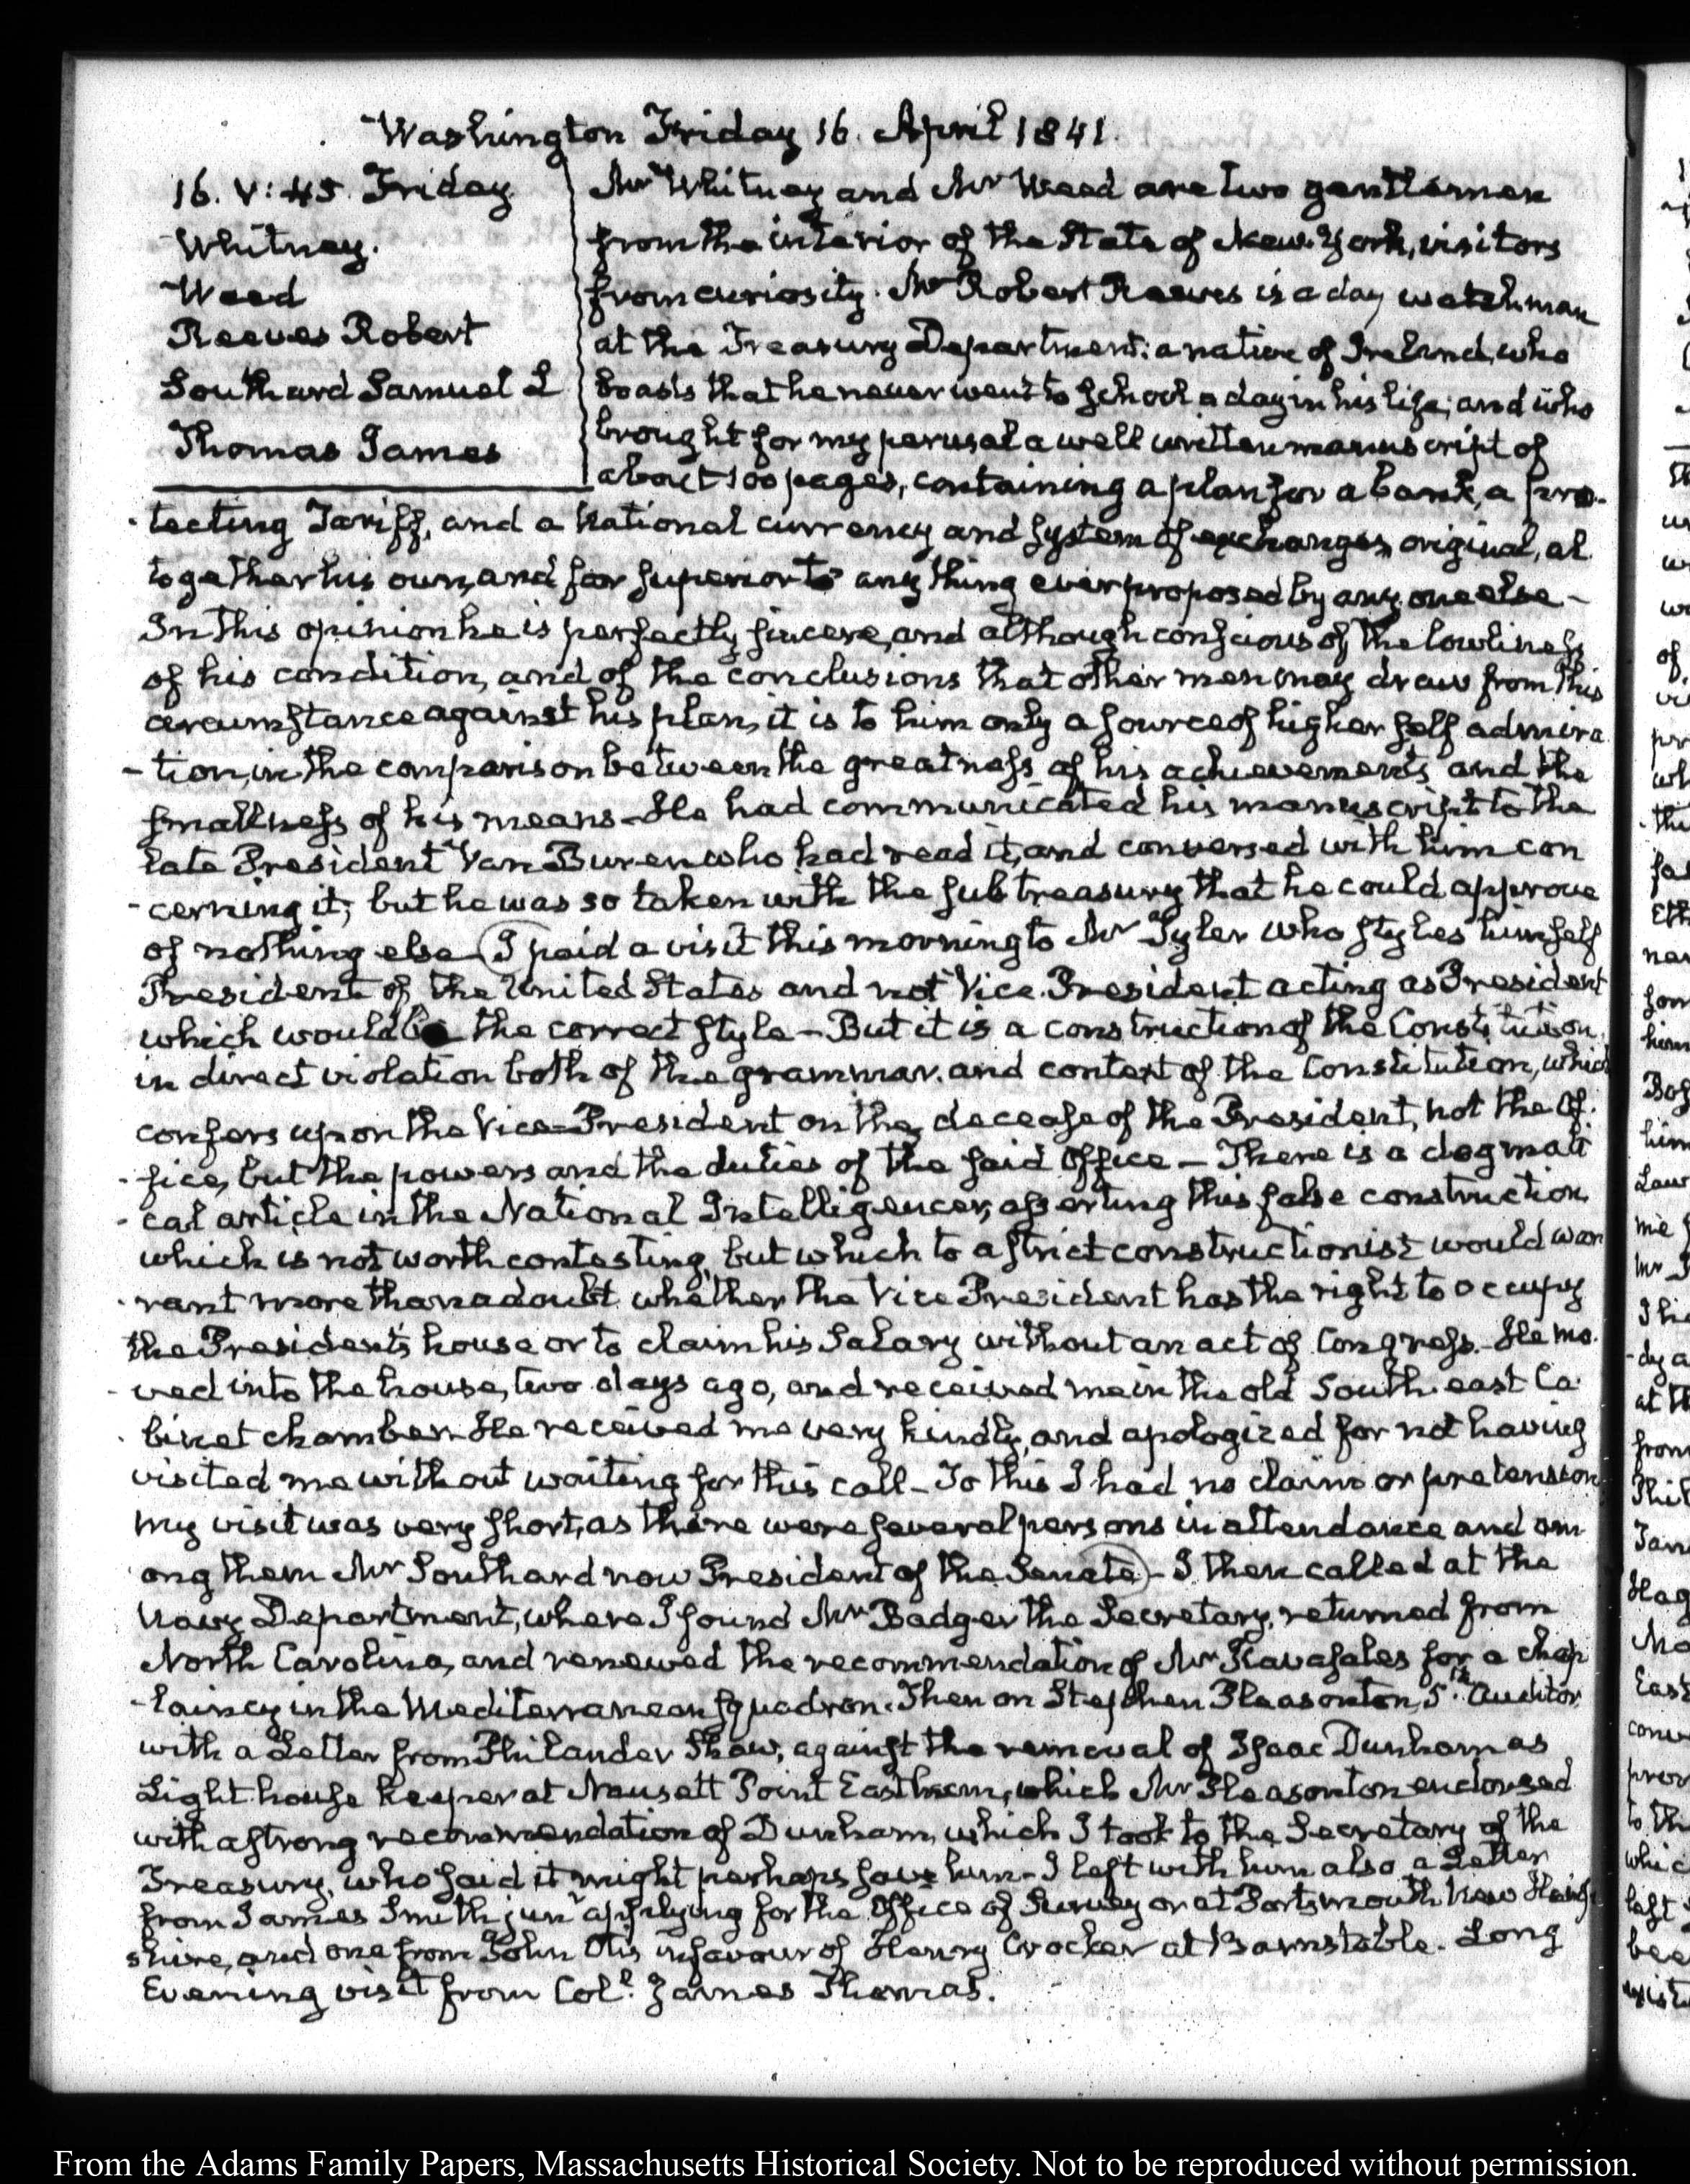 Washington Friday 16. April 1841.
16. V: 45. Friday
Whitney.
Weed
Reeves Robert
Southard Samuel L
Thomas James
Mr Whitney and Mr Weed are two gentlemen
from the interior of the State of New-York, visitors
from curiosity. Mr Robert Reeves is a day watchman
at the Treasury Department: a native of Ireland, who
boasts that he never went to school a day in his life; and who
brought for my perusal a well written manuscript of
about 100 pages, containing a plan for a bank, a pro-
-tecting Tariff, and a National currency and system of exchanges, original, al
together his own, and far superior to any thing ever proposed by any one else -
In this opinion he is perfectly sincere, and although conscious of the lowliness
of his condition, and of the conclusions that other men may draw from this
circumstance against his plan, it is to him only a source of higher self admira
-tion, in the comparison between the greatness of his achievements and the
smallness of his means - He had communicated his manuscript to the
late President Van Buren who had read it, and conversed with him con
-cerning it; but he was so taken with the sub treasury that he could approve
of nothing else - I paid a visit this morning to Mr Tyler who styles himself
President of the United States and not Vice-President acting as President
which would be the correct style - But it is a construction of the Constitution
in direct violation both of the grammar and context of the Constitution, which
confers upon the Vice-President on the decease of the President, not the Of-
-fice, but the powers and the duties of the said Office - There is a dogmati
-cal article in the National Intelligencer, asserting this false construction
which is not worth contesting, but which to a strict constructionist would war
-rant more than a doubt whether the Vice President has the right to occupy
the President's house or to claim his Salary without an act of Congress. - He mo-
-ved into the house, two days ago, and received me in the old South-east Ca-
-binet chamber. He received me very kindly, and apologized for not having
visited me without waiting for this call - To this I had no claim or pretension
my visit was very short, as there were several persons in attendance and am
ong them Mr Southard now President of the Senate - I then called at the
Navy Department, where I found Mr Badger the Secretary, returned from
North Carolina, and renewed the recommendation of Mr Kavasales for a chap
-laincy in the Mediterranean Squadron. Then on Stephen Pleasonton, 5.th Auditor
with a Letter from Philander Shaw, against the removal of Isaac Dunham as
Light-house Keeper at Nausett Point Eastham, which Mr Pleasonton endorsed
with a strong recommendation of Dunham, which I took to the Secretary of the
Treasury, who said it might perhaps save him - I left with him also a Letter
from James Smith junr applying for the Office of Surveyor at Portsmouth New Hamp
shire, and one from John Otis in favour of Henry Crocker at Barnstable. Long
Evening visit from Col.l James Thomas.
From the Adams Family Papers, Massachusetts Historical Society. Not to be reproduced without permission.